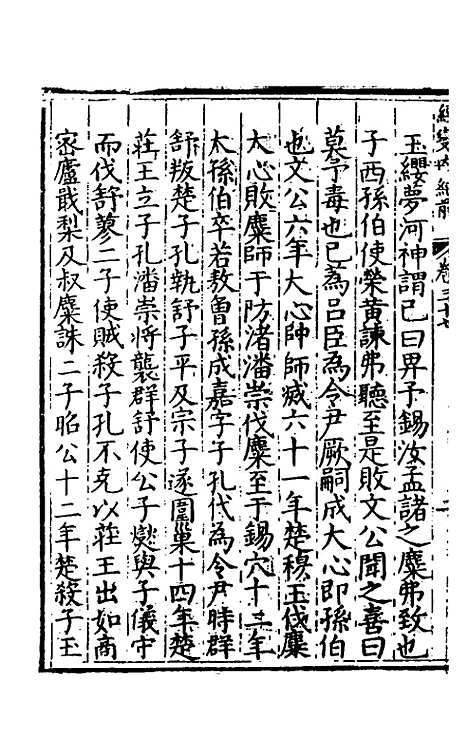 卷三十七
玉纓夢河神謂己曰畀予錫汝孟諸之麋弗致也
子西孫伯使榮黃諫弗聽至是敗文公聞之喜曰
莫予毒也已蒍呂臣為令尹厥嗣成大心即孫伯
也文公六年大心帥師滅六十一年楚穆王伐麋
大心敗麋師于防渚潘崇伐麋至于錫穴十三年
太孫伯卒若敖魯孫成嘉字子孔代為令尹時群
舒叛楚子孔執舒子平及宗子遂圍巢十四年楚
莊王立子孔潘崇將襲群舒使公子燮與子儀守
而伐舒蓼二子使賊殺子孔不克以莊王出如商
宻廬戢梨及叔麋誅二子昭公十二年楚殺子玉